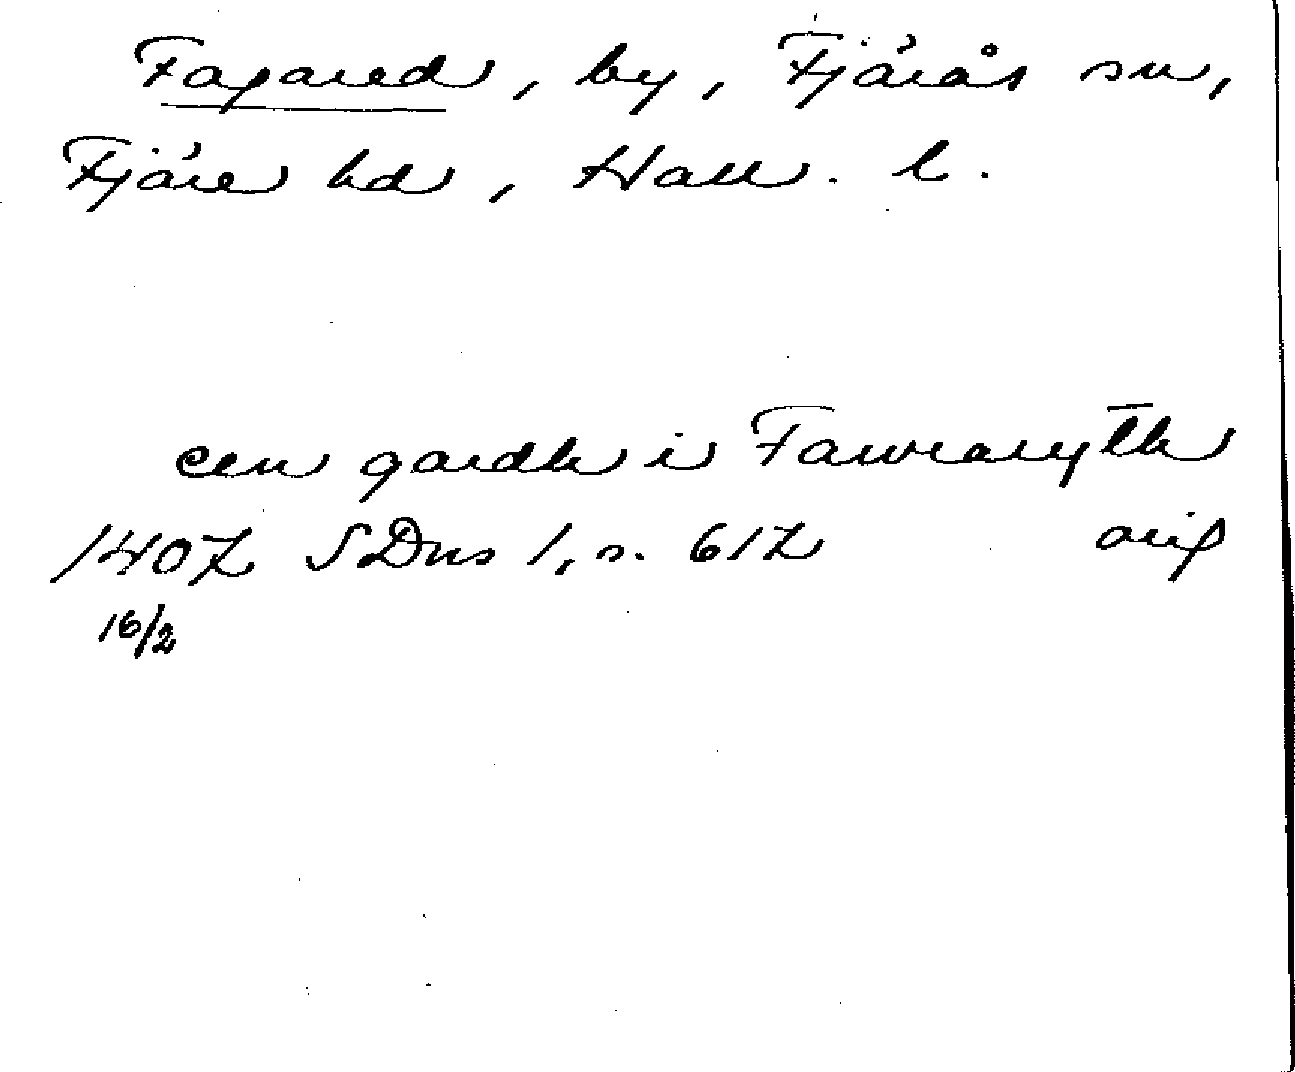 Fagared, by, Fjärås sn,
Fjäre hd, Hall. l.
een gardh i Fawraryth
1407 SDns 1, s. 617 orig
16/2